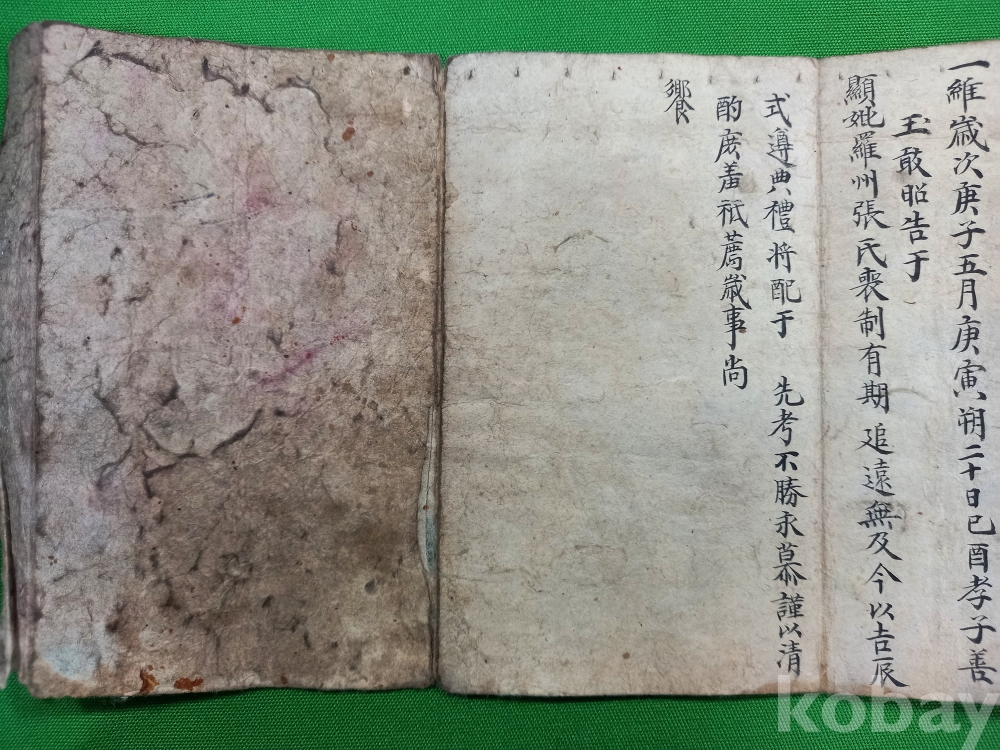 一維歲次庚子五月庚寅朔二十日己酉孝子善
玉敢昭告于
顯妣羅州張氏喪制有期追遠無及今以吉辰
式遵典禮将配于 先考不勝永慕謹以清
酌庶羞祗薦歲事尚
饗
kobay